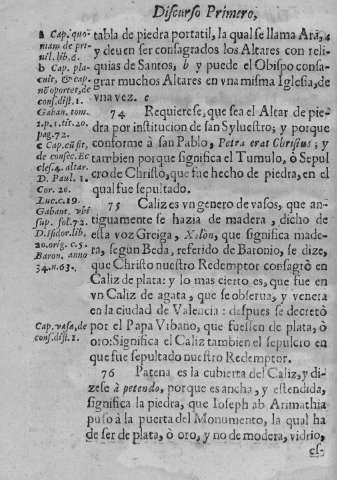 Discurso Primero,
a Cap. quo-
niam de pri-
uil. lib. 6.
b Cap. pla-
cuit, & cap.
nõ oportet, de
cons. dist. 1.
Gaban. tom.
1. p. 1. tit. 20.
pag. 72.
c Cap. cũ sit,
de consec. Ec
cles. 4. altar.
D. Paul. 1.
Cor. 20.
Luc. c. 19.
Gabant. vbi
sup. fol. 72.
D. Isidor. lib.
20. orig. c. 5.
Baron. anno
34. n. 63.
Cap. vasa, de
cons. dist. 1.
tabla de piedra portatil, la qual se llama Ara, a
y deuen ser consagrados los Altares con reli-
quias de Santos, b y puede el Obispo consa-
grar muchos Altares en vna misma Iglesia, de
vna vez. c
74 Requierese, que sea el Altar de pie-
dra por institucion de san Syluestro; y porque
conforme à san Pablo, Petra erat Christus; y
tambien porque significa el Tumulo, ò Sepul
cro de Christo, que fue hecho de piedra, en el
qual fue sepultado.
75 Caliz es vn genero de vasos, que an-
tiguamente se hazia de madera, dicho de
esta voz Greiga, Xilòn, que significa made-
ra, segun Beda, referido de Baronio, se dize,
que Christo nuestro Redemptor consagrò en
Caliz de plata: y lo mas cierto es, que fue en
vn Caliz de agata, que se obserua, y venera
en la ciudad de Valencia: despues se decretò
por el Papa Vrbano, que fuessen de plata, ò
oro: Significa el Caliz tambien el sepulcro en
que fue sepultado nuestro Redemptor.
76 Patena es la cubierta del Caliz, y di-
zese à petendo, porque es ancha, y estendida,
significa la piedra, que Ioseph ab Arimathia
puso à la puerta del Monumento, la qual ha
de ser de plata, ò oro, y no de modera, vidrio,
es-